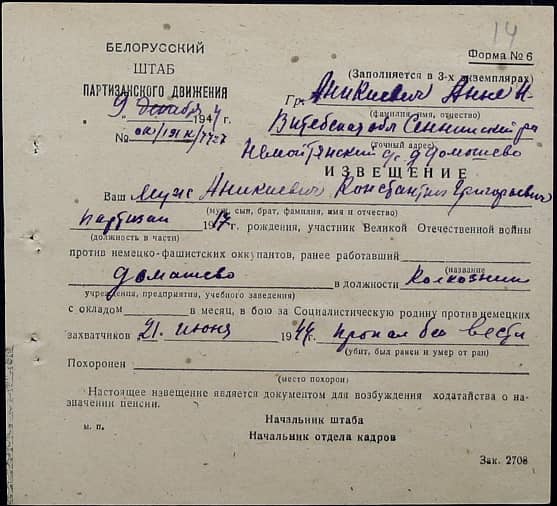 14
БЕЛОРУССКИЙ
ШТАБ
ПАРТИЗАНСКОГО ДВИЖЕНИЯ
Форма № 6
(Заполняется в 3-х экземплярах)
Гр. Аникиевич Анне Н.
(фамилия, имя, отчество)
„9 декабря 1944г.
№ ок/191к/7727
Витебская обл Сеннинский р-н
(точный адрес)
Немойтянский с/с д Домашево
ИЗВЕЩЕНИЕ
Ваш муж Аникиевич Константин Григорьевич
(муж, сын, брат, фамилия, имя и отчество)
партизан 1917г. рождения, участник Великой Отечественной войны
(должность в части)
против немецко-фашистских оккупантов, ранее работавший
(название
Домашево в должности Колхозник
учреждения, предприятия, учебного заведения)
с окладом в месяц, в бою за Социалистическую родину против немецких
захватчиков 21. июня 1944г. пропал без вести
(убит, был ранен и умер от ран)
Похоронен
(место похорон)
Настоящее извещение является документом для возбуждения ходатайства о на-
значении пенсии.
Начальник штаба
м. п.
Начальник отдела кадров
Зак. 2708